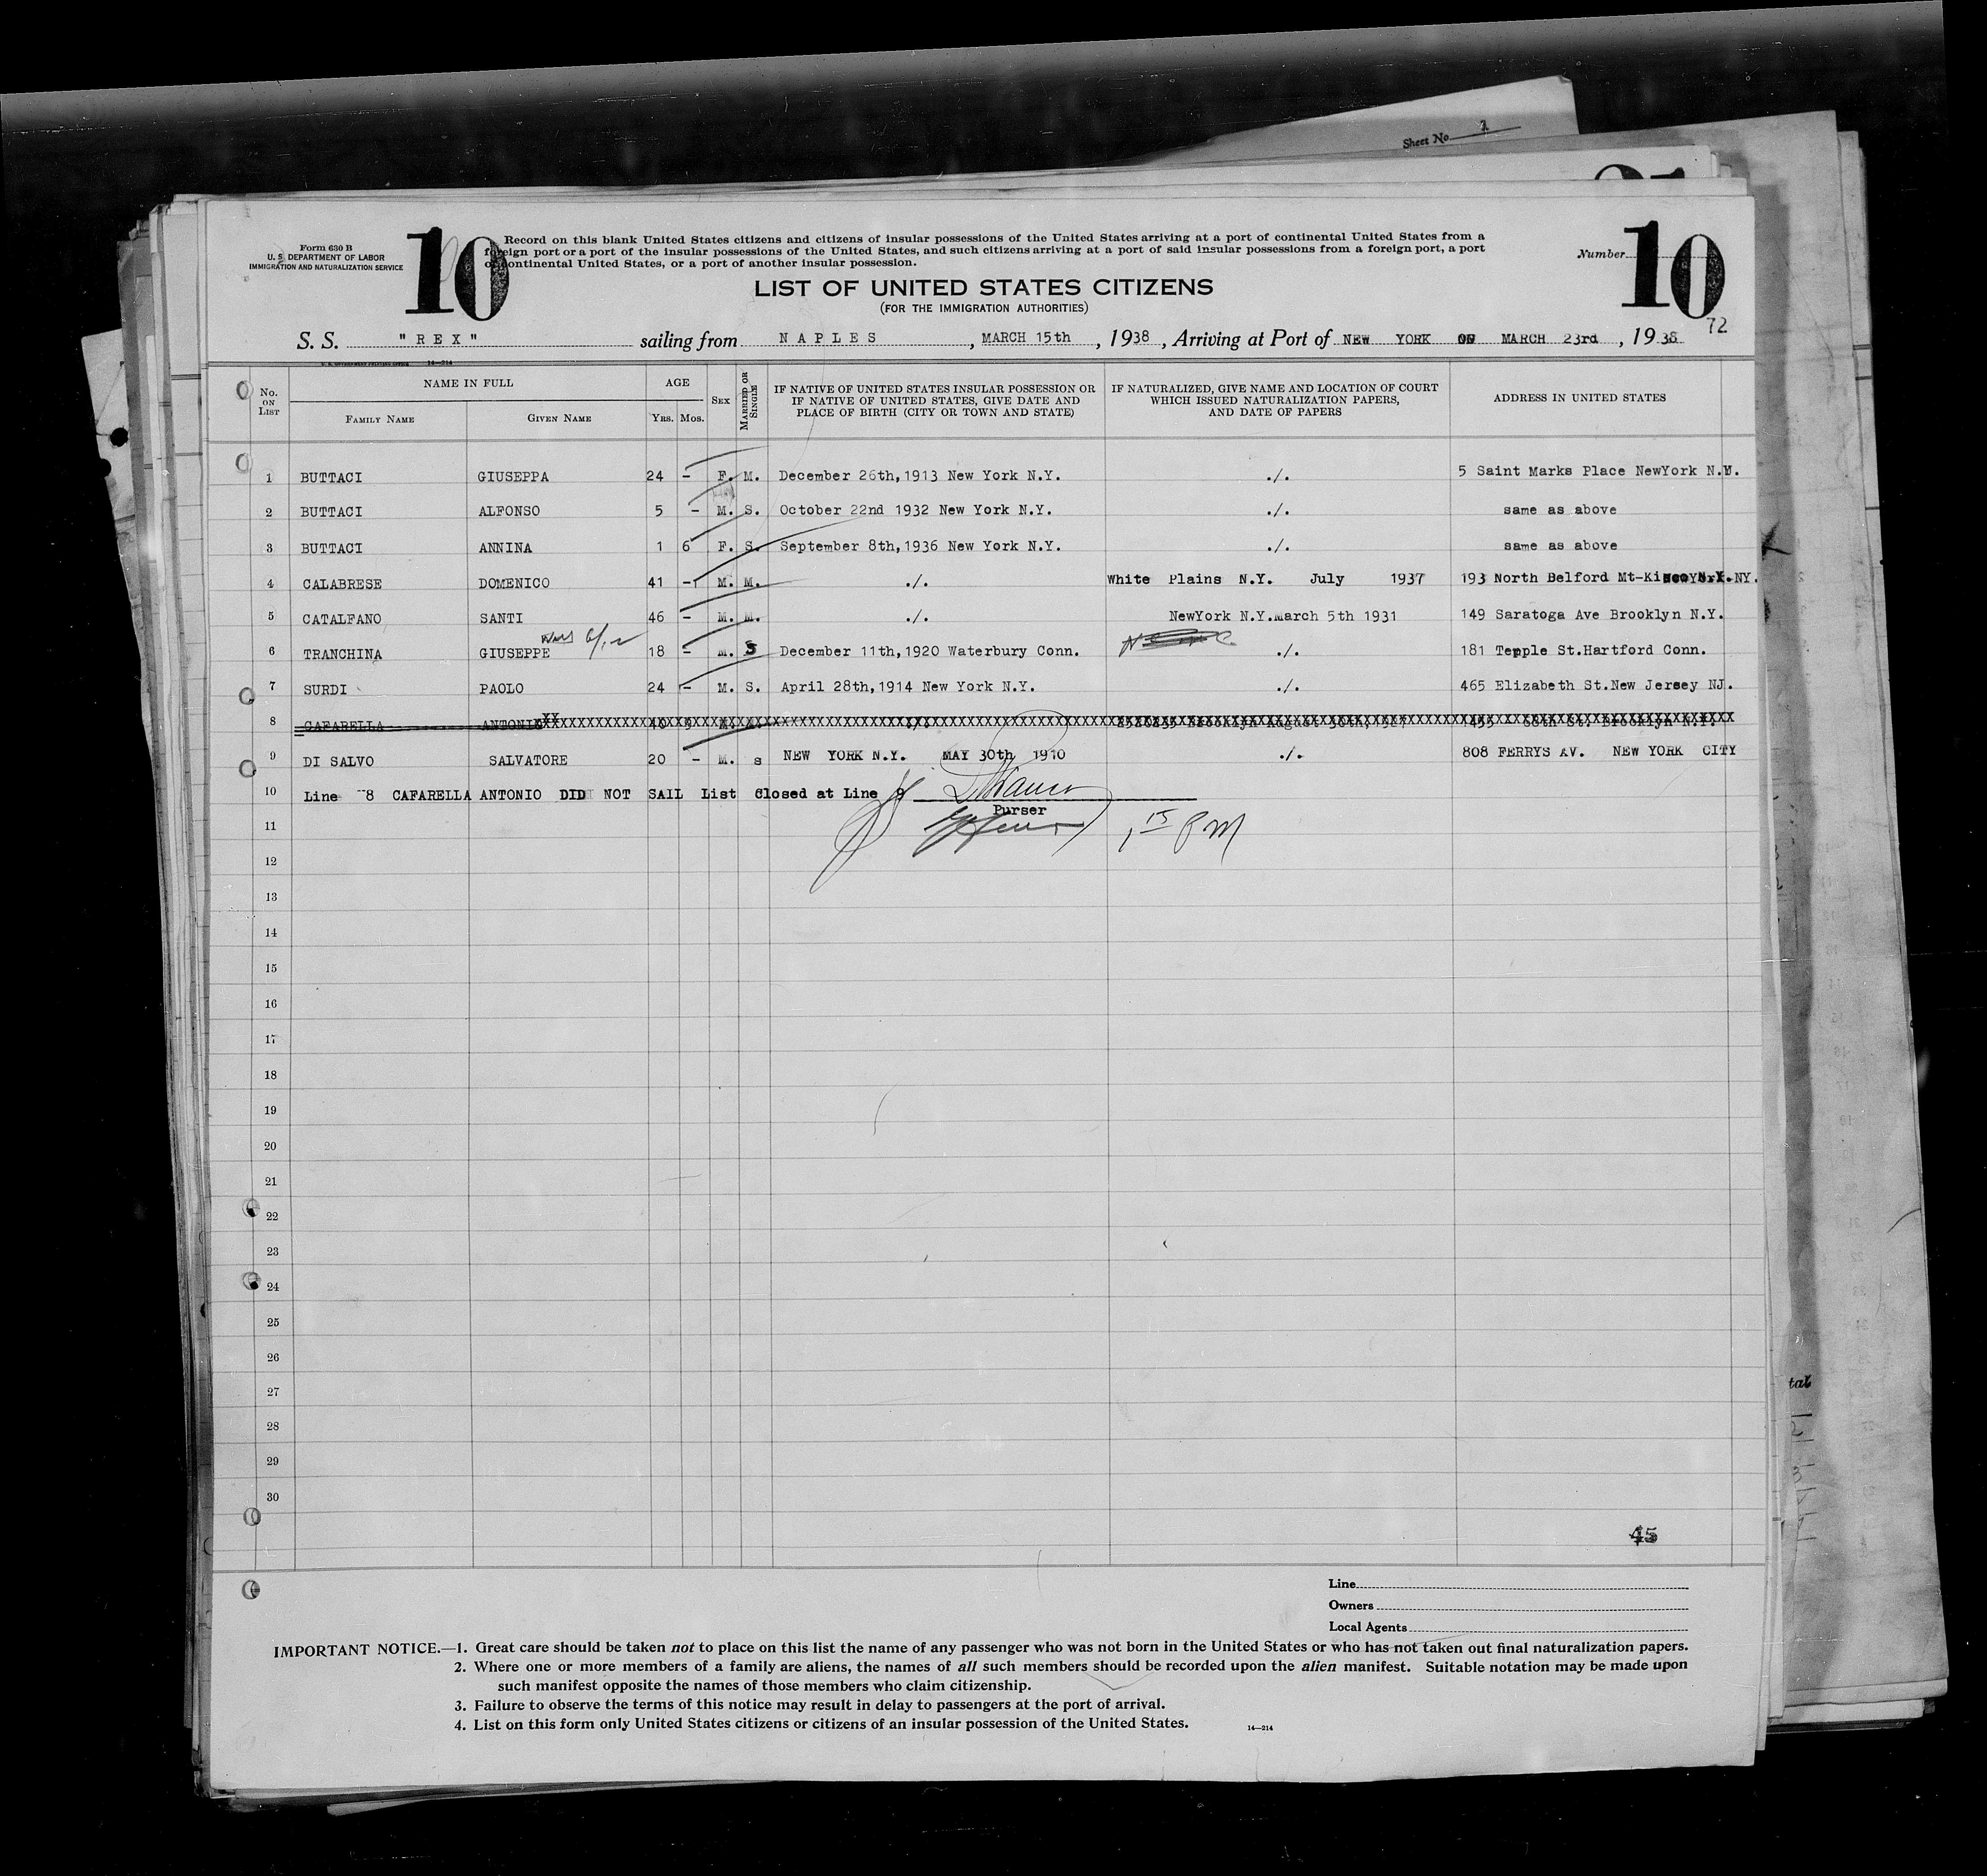 Sheet No. 2
Form 630 B
U. S. DEPARTMENT OF LABOR
IMMIGRATION AND NATURALIZATION SERVICE
10
Record on this blank United States citizens and citizens of insular possessions of the United States arriving at a port of continental United States from a
foreign port or a port of the insular possessions of the United States, and such citizens arriving at a port of said insular possessions from a foreign port, a port
of continental United States, or a port of another insular possession.
Number 10
72
LIST OF UNITED STATES CITIZENS
(FOR THE IMMIGRATION AUTHORITIES)
S. S. "REX" sailing from NAPLES, MARCH 15th, 1938, Arriving at Port of NEW YORK ON MARCH 23rd, 1938
14—214
No. ON LIST
NAME IN FULL
FAMILY NAME GIVEN NAME
AGE
YRS. MOS.
SEX
MARRIED OR SINGLE
IF NATIVE OF UNITED STATES INSULAR POSSESSION OR
IF NATIVE OF UNITED STATES, GIVE DATE AND
PLACE OF BIRTH (CITY OR TOWN AND STATE)
IF NATURALIZED, GIVE NAME AND LOCATION OF COURT
WHICH ISSUED NATURALIZATION PAPERS,
AND DATE OF PAPERS
ADDRESS IN UNITED STATES
1 BUTTACI GIUSEPPA 24 - F. M. December 26th,1913 New York N.Y. ./. 5 Saint Marks Place NewYork N.Y.
2 BUTTACI ALFONSO 5 - M. S. October 22nd 1932 New York N.Y. ./. same as above
3 BUTTACI ANNINA 1 6 F. S. September 8th,1936 New York N.Y. ./. same as above
4 CALABRESE DOMENICO 41 - M. M. ./. White Plains N.Y. July 1937 193 North Belford Mt-Kisco NY.
5 CATALFANO SANTI 46 - M. M. ./. NewYork N.Y.march 5th 1931 149 Saratoga Ave Brooklyn N.Y.
6 TRANCHINA GIUSEPPE 18 - M. S December 11th,1920 Waterbury Conn. ./. 181 Temple St.Hartford Conn.
7 SURDI PAOLO 24 - M. S. April 28th,1914 New York N.Y. ./. 465 Elizabeth St.New Jersey NJ.
8 CAFARELLA ANTONIO 40 9 M. ./. Brooklyn August 68th St. Brooklyn N.Y.
9 DI SALVO SALVATORE 20 - M. s NEW YORK N.Y. MAY 30th 1910 ./. 808 FERRYS AV. NEW YORK CITY
10 Line 8 CAFARELLA ANTONIO DID NOT SAIL List Closed at Line 9
Purser
11
1 15 PM
12
13
14
15
16
17
18
19
20
21
22
23
24
25
26
27
28
29
30
45
Line
Owners
Local Agents
IMPORTANT NOTICE.—1. Great care should be taken not to place on this list the name of any passenger who was not born in the United States or who has not taken out final naturalization papers.
2. Where one or more members of a family are aliens, the names of all such members should be recorded upon the alien manifest. Suitable notation may be made upon
such manifest opposite the names of those members who claim citizenship.
3. Failure to observe the terms of this notice may result in delay to passengers at the port of arrival.
4. List on this form only United States citizens or citizens of an insular possession of the United States.
14—214